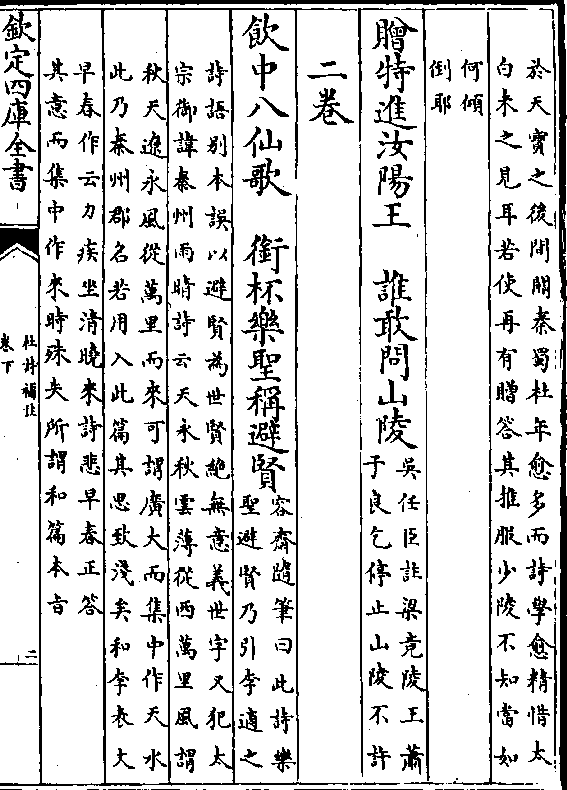 於天寳之後間關秦蜀杜年愈多而詩學愈精惜太
白未之見耳若使再有贈答其推服少陵不知當如
何傾
倒耶
贈特進汝陽王　誰敢問山陵
吳任臣註梁竟陵王蕭
子良乞停止山陵不許
二卷
飲中八仙歌　銜杯樂聖稱避賢
容齋隨筆曰此詩樂
聖避賢乃引李適之
詩語别本誤以避賢為世賢絶無意義世字又犯太
宗御諱秦州雨晴詩云天永秋雲薄從西萬里風謂
秋天遼永風從萬里而來可謂廣大而集中作天水
此乃秦州郡名若用入此篇其思致淺矣和李表丈
早春作云力疾坐清曉來詩悲早春正答
其意而集中作來時殊失所謂和篇本旨
欽定四庫全書
杜詩補註
卷下
二